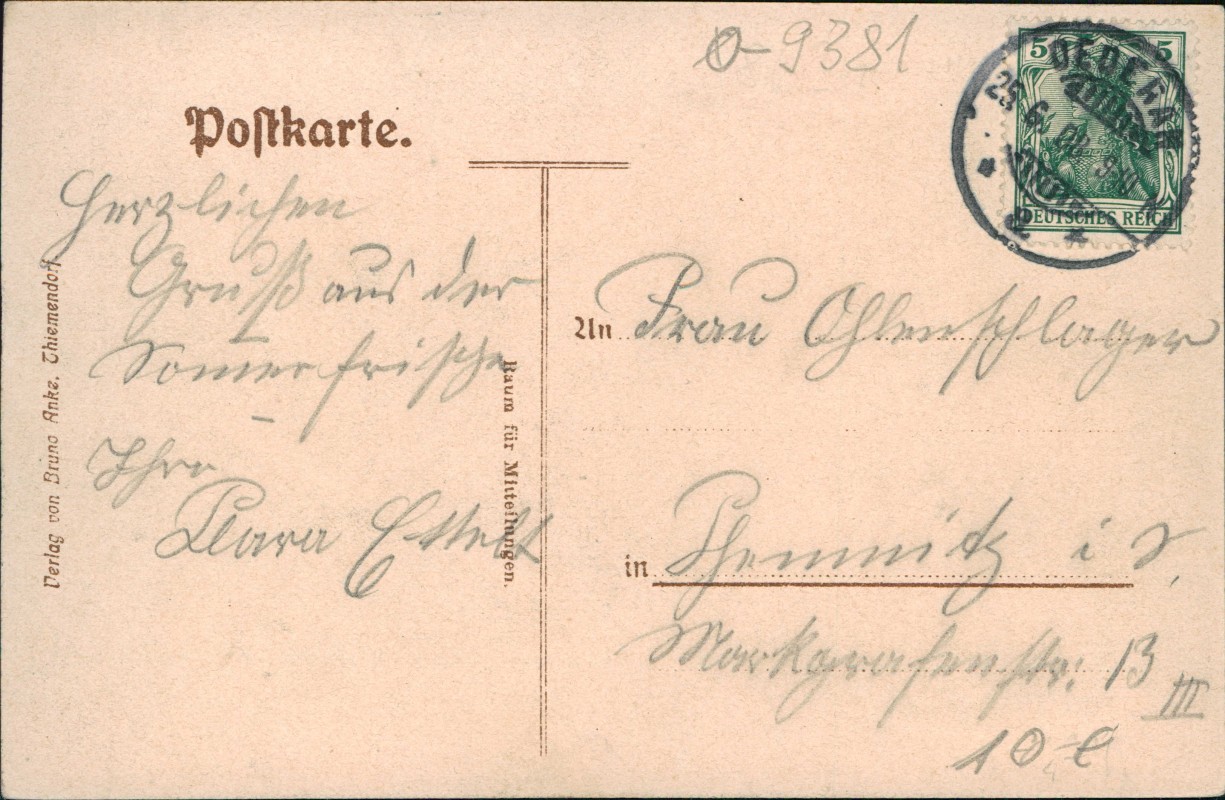 σ-9381
5 5
OEDERAN
25. 6. 08. 9-10 N.
DEUTSCHES REICH
Postkarte.
Herzlichen
Gruß aus der
Somerfrische
Ihre
Clara Ettelt
Verlag von Bruno Anke, Thiemendorf.
Raum für Mitteilungen.
An Frau Ohlenschlager
in Chemnitz i S,
Markgrafenstr: 13
III
10 €